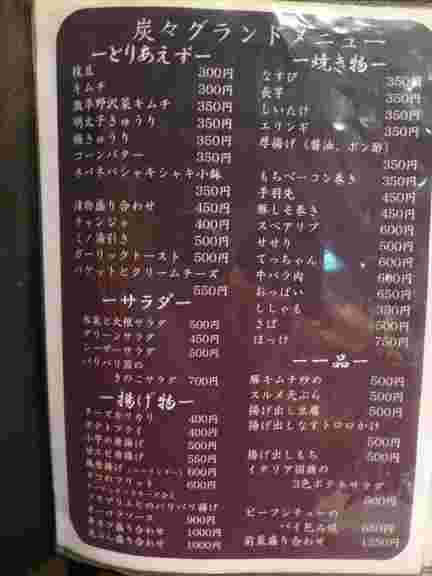 炭々グランドメニュー
ーとりあえずー
枝豆 300円
キムチ 300円
激辛野沢菜キムチ 350円
明太子きゅうり 350円
梅きゅうり 350円
コーンバター 350円
ネバネバシャキシャキ小鉢
350円
漬物盛り合わせ 450円
チャンジャ 400円
ミノ湯引き 500円
ガーリックトースト 500円
バゲットとクリームチーズ
550円
ーサラダー
水菜と大根サラダ 500円
グリーンサラダ 450円
シーザーサラダ 500円
パリパリ
きのこサラダ 700円
ー揚げ物ー
チーズカリカリ 400円
ポテトフライ 400円
500円
甘エビ唐揚げ 550円
600円
フリット 600円
パリパリ揚げ
900円
盛り合わせ 1000円
盛り合わせ 1000円
ー焼き物ー
なすび 350円
長芋 350円
しいたけ 350円
エリンギ 350円
厚揚げ（醤油、ポン酢）
350円
もちベーコン巻き 350円
手羽先 450円
豚しそ巻き 450円
スペアリブ 600円
せせり 500円
てっちゃん 600円
牛バラ肉 600円
おっぱい 650円
ししゃも 350円
さば 500円
ほっけ 750円
ー一品ー
豚キムチ炒め 500円
スルメ天ぷら 500円
揚げ出し豆腐 500円
揚げ出しなすトロロかけ
500円
揚げ出しもち 500円
イタリア国旗の
3色ポテトサラダ
500円
ビーフシチューの
パイ包み焼 650円
前菜盛り合わせ 1250円